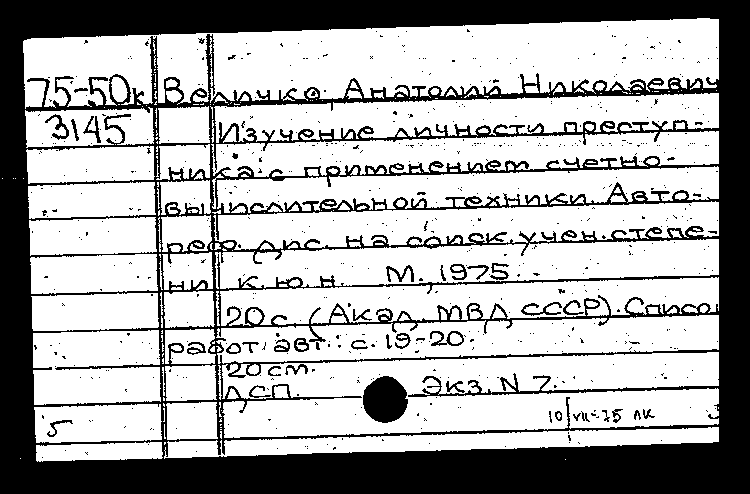 75-50к Величко, Анатолий Николаевич
3145 Изучение личности преступ-
ника с применением счетно-
вычислительной техники. Авто-
реф. дис. на соиск. учен. степе-
ни к.ю.н. М., 1975.
20 с. (Акад. МВД СССР). Списо
работ авт.: с. 19-20.
20 см.
ДСП. Экз. N 7.
5 10/VII-75 лк